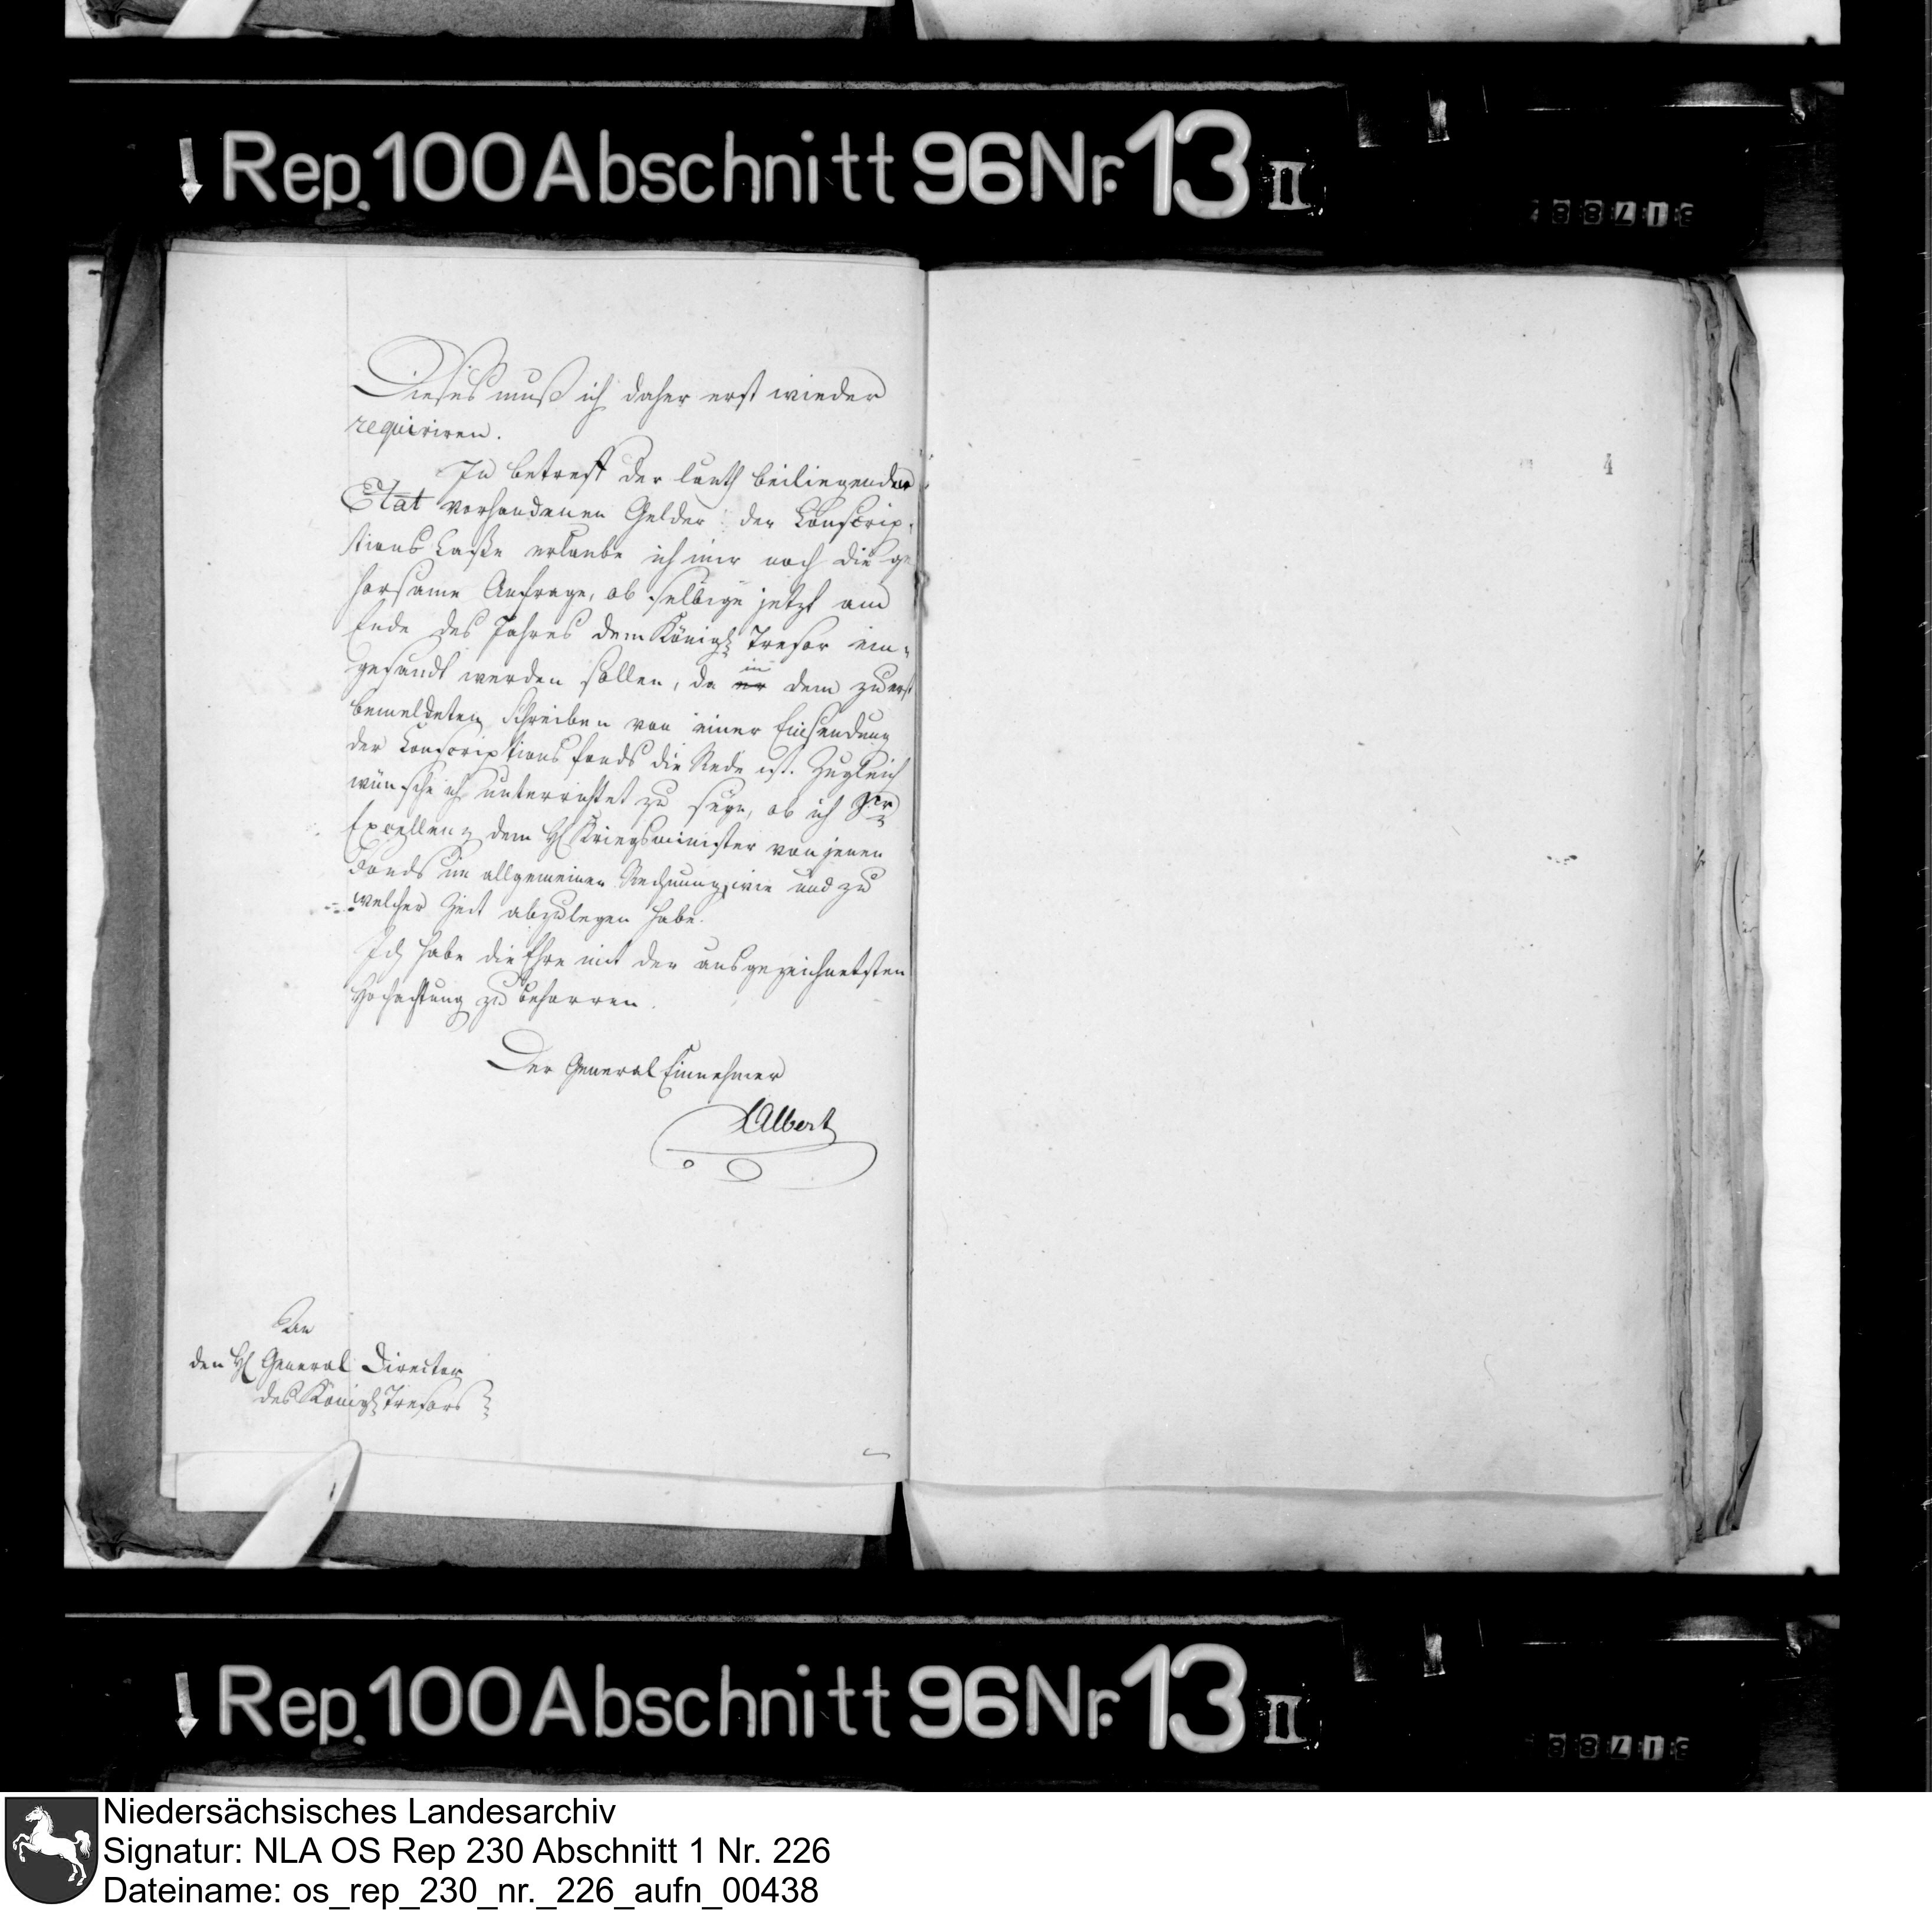 Rep. 100 Abschnitt 96 Nr. 13 II
Dieses muß ich daher erst wieder
requiriren.
In betreff der lauth beiliegenden
Etat vorhandenen Gelder der Conscrip-
tions Casse erlaube ich mir noch die ge
horsame Anfrage, ob selbige jetzt am
Ende des Jahres dem Königl Tresor ein-
gesandt werden sollen, da in dem zuerst
bemeldeten Schreiben von einer Einsendung
der Conscriptions fonds die Rede ist. Zugleich
wünsche ich unterrichtet zu seyn, ob ich Sr
Excellenz dem H Kriegsminister von jenen
Fonds im allgemeinen Rechnung, wie und zu
welcher Zeit abzulegen habe.
Ich habe die Ehre mit der ausgezeichnetsten
Hochachtung zu beharren.
Der General Einnehmer
Albert
An
den H General Director
des Königl Tresors
4
Rep. 100 Abschnitt 96 Nr. 13 II
Niedersächsisches Landesarchiv
Signatur: NLA OS Rep 230 Abschnitt 1 Nr. 226
Dateiname: os_rep_230_nr._226_aufn_00438